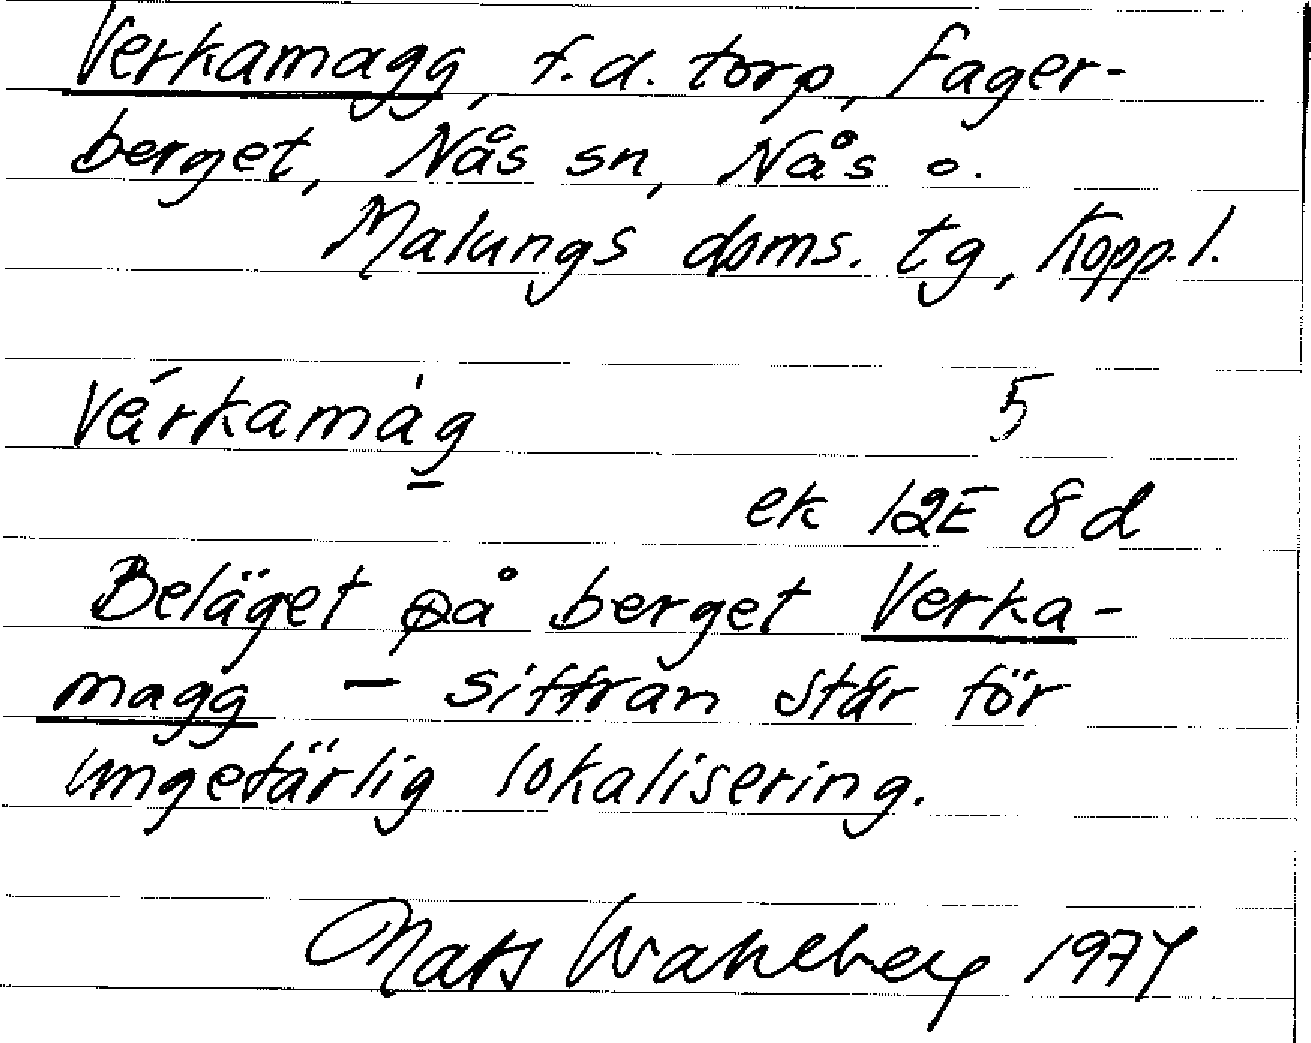 Verkamagg, f.d. torp, Fager-
berget, Nås sn, Nås o.
Malungs doms. tg, Kopp. l.
Vérkamàg 5
ek 12E 8d
Beläget på berget Verka-
magg – siffran står för
ungefärlig lokalisering.
Mats Wahlberg 1974